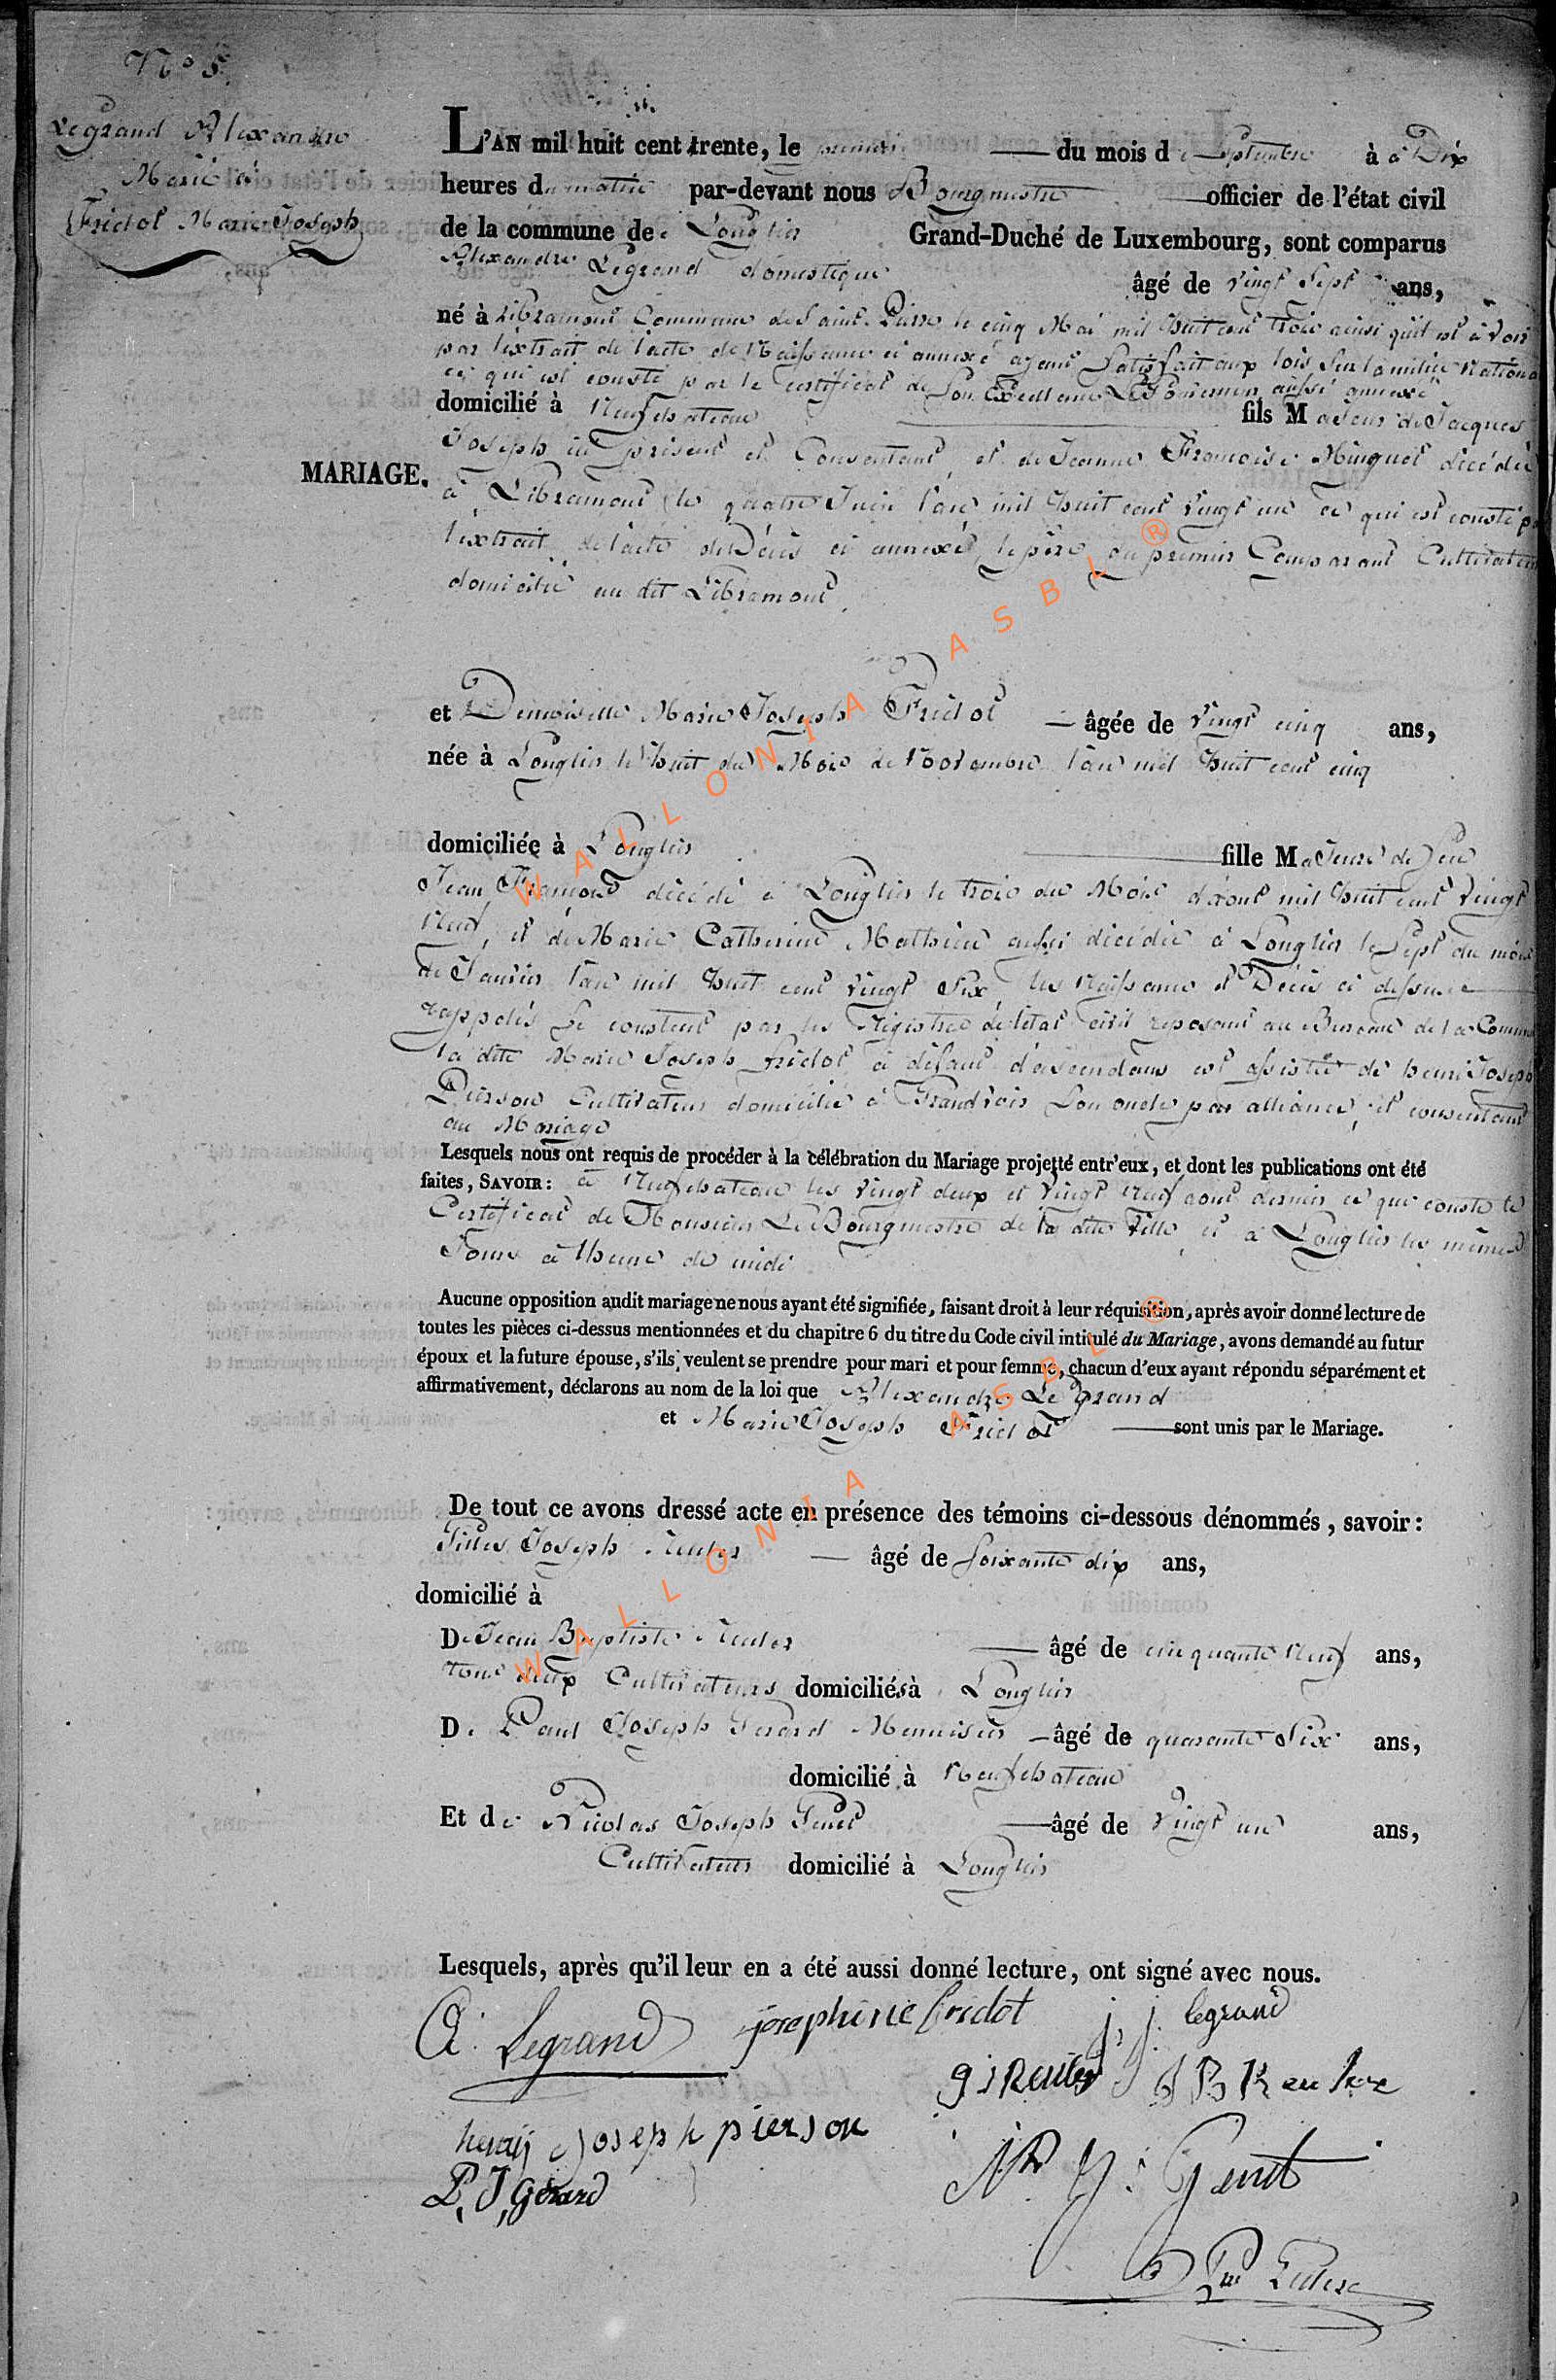 N° 5.
Legrand Alexandre
Marié à
Fridot Marie Joseph
L'AN mil huit cent trente, le premier du mois de Septembre à à Dix
heures du matin par-devant nous Bourgmestre officier de l'état civil
de la commune de Longlier Grand-Duché de Luxembourg, sont comparus
Alexandre Legrand domestique âgé de vingt Sept ans,
né à Libramont Commune de Saint Pierre le cinq Mai mil huit cent trois ainsi qu'il est à voir
par l'extrait de l'acte de Naissance ci annexé ayant Satisfait aux lois Sur la milice Nationa
ce qui est consté par le certificat de Son Excellence Le aussi annexé
domicilié à Neufchateau fils Majeur de Jacques
Joseph ici présent et Consentant, et de Jeanne Françoise Ninquet décédée
MARIAGE.
à Libramont le quatre Juin l'an mil huit cent vingt un ce qui est consté p
l'extrait de l'acte de Décès ci annexé, le père du premier Comparant Cultivateur
domicilié au dit Libramont.
et Demoiselle Marie Joseph Fridot âgée de vingt cinq ans,
née à Longlier le huit du Mois de Novembre l'an mil huit cent cinq
domiciliée à Longlier fille Majeure de feu
Jean decédé à Longlier le trois du Mois d'Aout mil huit cent vingt
Neuf, et de Marie Catherine Mathieu aussi décédée à Longlier le Sept du mois
de Janvier l'an mil huit cent vingt Six, les Naissance et Décès ci dessus
rappelés Se constent par les Régistres de l'état civil reposant au Bureau de la Commu
la dite Marie Joseph Fridot à défaut d'ascendans est assistée de henri Joseph
Pierson Cultivateur domicilié à Grandvoir Son oncle par alliance, et consentant
au Mariage
Lesquels nous ont requis de procéder à la célébration du Mariage projetté entr'eux, et dont les publications ont été
faites, SAVOIR: à Neufchateau les vingt deux et vingt neuf aout dernier ce que conste le
Certificat de Monsieur Le Bourgmestre de la dite Ville, et à Longlier les mêmes
Jours à l'heure de midi
Aucune opposition audit mariage ne nous ayant été signifiée, faisant droit à leur réquisition, après avoir donné lecture de
toutes les pièces ci-dessus mentionnées et du chapitre 6 du titre du Code civil intitulé du Mariage, avons demandé au futur
époux et la future épouse, s'ils veulent se prendre pour mari et pour femme, chacun d'eux ayant répondu séparément et
affirmativement, déclarons au nom de la loi que Alexandre Legrand
et Marie Joseph Fridot sont unis par le Mariage.
De tout ce avons dressé acte en présence des témoins ci-dessous dénommés, savoir:
Gilles Joseph Reuter âgé de Soixante dix ans,
domicilié à
De Jean Baptiste Reuter âgé de cinquante Neuf ans,
tous deux Cultivateurs domiciliés à Longlier
De Paul Joseph Gerard Menuisier âgé de quarante Six ans,
domicilié à Neufchateau
Et de Nicolas Joseph Genet âgé de vingt un ans,
Cultivateur domicilié à Longlier
Lesquels, après qu'il leur en a été aussi donné lecture, ont signé avec nous.
A. Legrand josephine fridot j. j. legrand
g j Reuter J B Reuter
henrij joseph pierson
N. J. Genet
P. J. Gérard
WALLONIA ASBL ®
WALLONIA ASBL ®